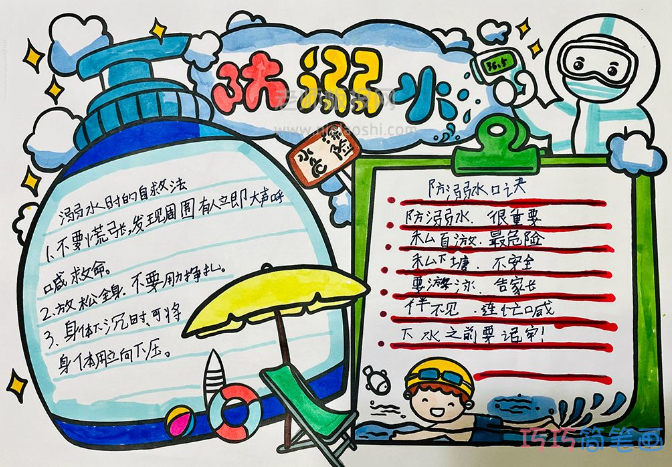 防溺水
36.5
水危险
溺水时的自救法
1.不要慌张,发现周围有人立即大声呼
喊救命。
2.放松全身,不要用力挣扎。
3.身体下沉时,可将
身体用立向下压。
防溺水口诀
防溺水.很重要
私自游.最危险
私下塘.不安全
要游泳.告家长
伴不见.连忙喊
下水之前要记牢!
巧巧简笔画